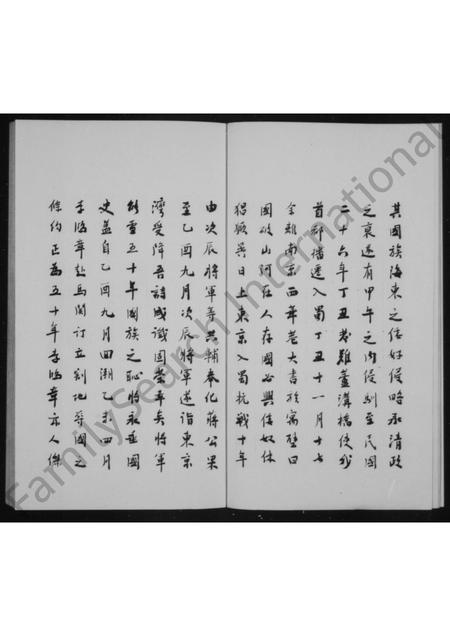 其國族海東之倭奴侵略承清政
之衰遂有甲午之內侵馴至民國
二十六年丁丑發難蘆溝橋使我
首都播遷入蜀丁丑十一月十七
余離南京西年巷大書於寓壁曰
國破山河在人存國必興倭奴休
猖獗異日上東京入蜀抗戰十年
由次辰將軍等共輔奉化蔣公果
至乙酉九月次辰將軍遂詣東京
灣受降吾詩成讖固榮幸矣將軍
創雪五十年國族之恥將永垂國
史蓋自乙酉九月回溯乙未四月
李鴻章赴馬關訂立割地辱國之
條約正為五十年李鴻章亦人傑
FamilySearch International